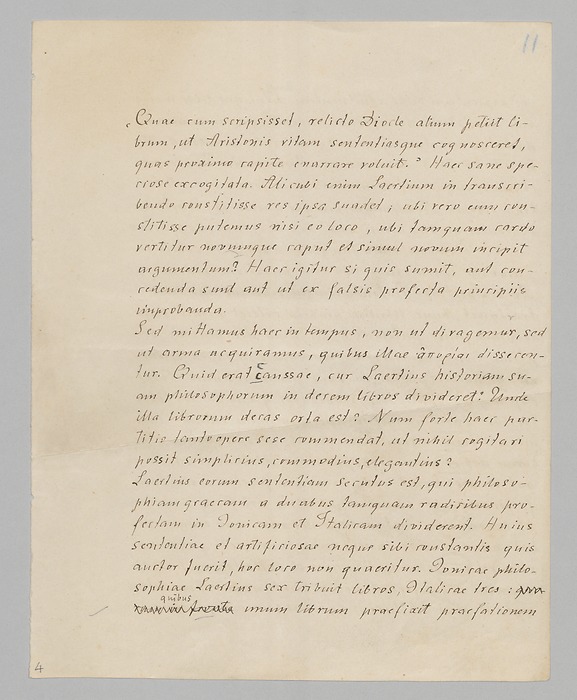 11
„Quae cum scripsisset, relicto Diocle alium petiit li-
brum, ut Aristonis vitam sententiasque cognosceret,
quas proximo capite enarrare voluit." Haec sane spe-
ciose excogitata. Alicubi enim Laertium in transcri-
bendo constitisse res ipsa suadet; ubi vero eum con-
stitisse putemus nisi eo loco, ubi tamquam cardo
vertitur novumque caput et simul novum incipit
argumentum? Haec igitur si quis sumit, aut con-
cedenda sunt aut ut ex falsis profecta principiis
improbanda.
Sed mittamus haec in tempus, non ut divagemur, sed
ut arma acquiramus, quibus illae ἀπορίαι dissecen-
tur. Quid erat caussae, cur Laertius historiam su-
am philosophorum in decem libros divideret? Unde
illa librorum decas orta est? Num forte haec par-
titio tantopere sese commendat, ut nihil cogitari
possit simplicius, commodius, elegantius?
Laertius eorum sententiam secutus est, qui philoso-
phiam graecam a duabus tamquam radicibus pro-
fectam in Ionicam et Italicam dividerent. Huius
sententiae et artificiosae neque sibi constantis quis
auctor fuerit, hoc loco non quaeritur. Ionicae philo-
sophiae Laertius sex tribuit libros, Italicae tres:
quibus
unum librum praefixit praefationem
4